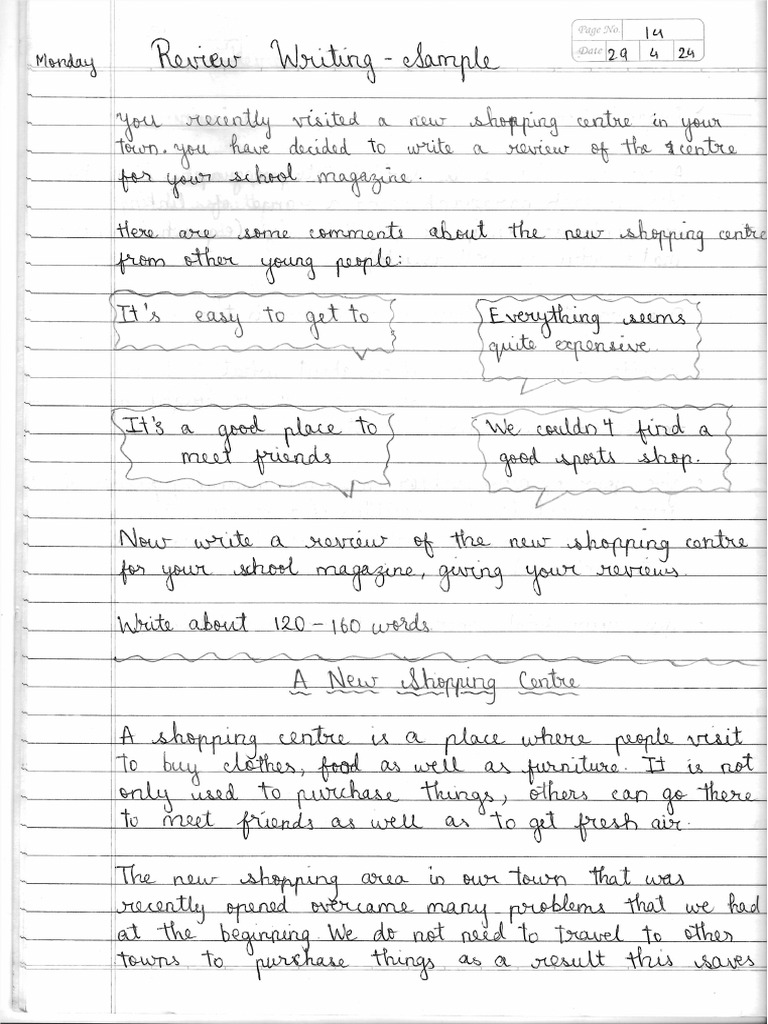 Page No. 14
Date 29 4 24
Monday
Review Writing - Sample
You recently visited a new shopping centre in your
town. You have decided to write a review of the centre
for your school magazine.
Here are some comments about the new shopping centre
from other young people:
It's easy to get to
Everything seems
quite expensive.
It's a good place to
meet friends
We couldn't find a
good sports shop.
Now write a review of the new shopping centre
for your school magazine, giving your reviews.
Write about 120 - 160 words
A New Shopping Centre
A shopping centre is a place where people visit
to buy clothes, food as well as furniture. It is not
only used to purchase things, others can go there
to meet friends as well as to get fresh air.
The new shopping area in our town that was
recently opened overcame many problems that we had
at the beginning. We do not need to travel to other
towns to purchase things as a result this saves